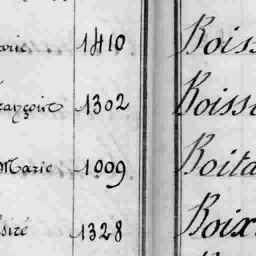 arie 1410 Boiss
rançoise 1302 Boiss
Marie 1009 Boita
siré 1328 Boix